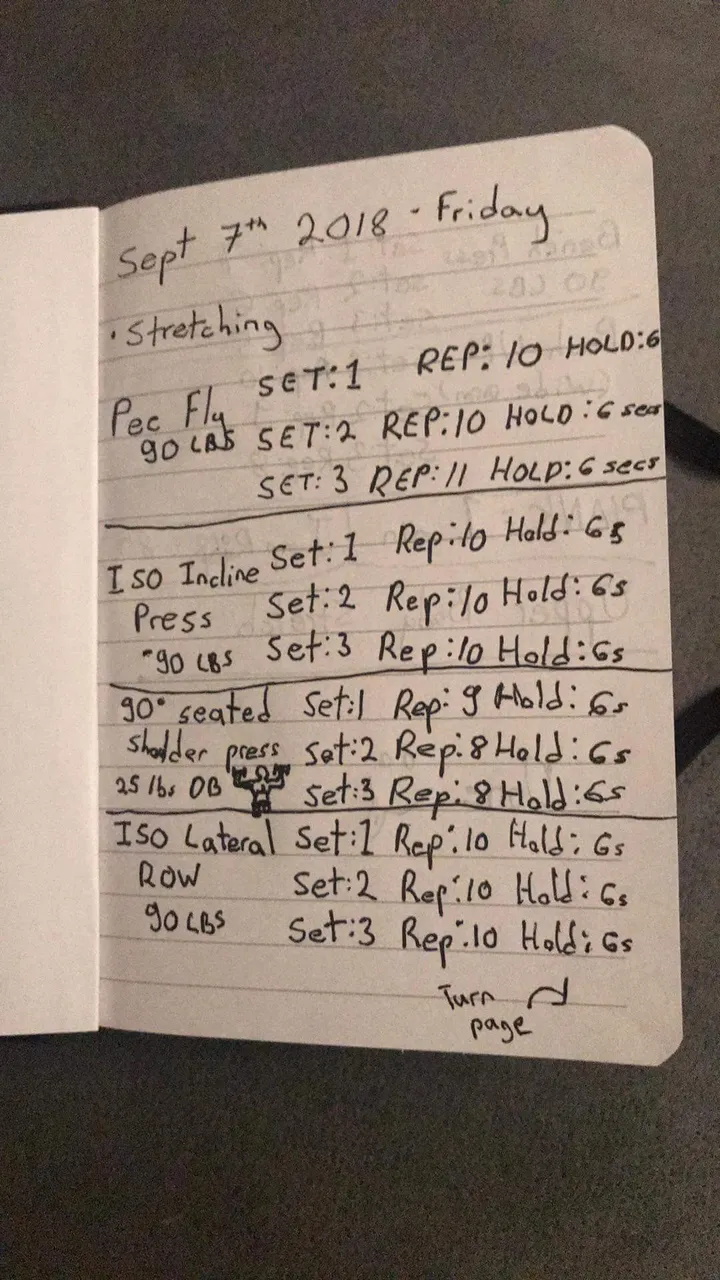 Sept 7th 2018 - Friday
• Stretching
Pec Fly SET:1 REP: 10 HOLD:6
90 LBS SET:2 REP:10 HOLD:6 secs
SET:3 REP:11 HOLD:6 secs
ISO Incline Set:1 Rep:10 Hold:6s
Press Set:2 Rep:10 Hold:6s
-90 LBS Set:3 Rep:10 Hold:6s
90° seated Set:1 Rep:9 Hold:6s
sholder press Set:2 Rep:8 Hold:6s
25 lbs DB Set:3 Rep:8 Hold:6s
ISO Lateral Set:1 Rep:10 Hold:6s
ROW Set:2 Rep:10 Hold:6s
90 LBS Set:3 Rep:10 Hold:6s
Turn
page